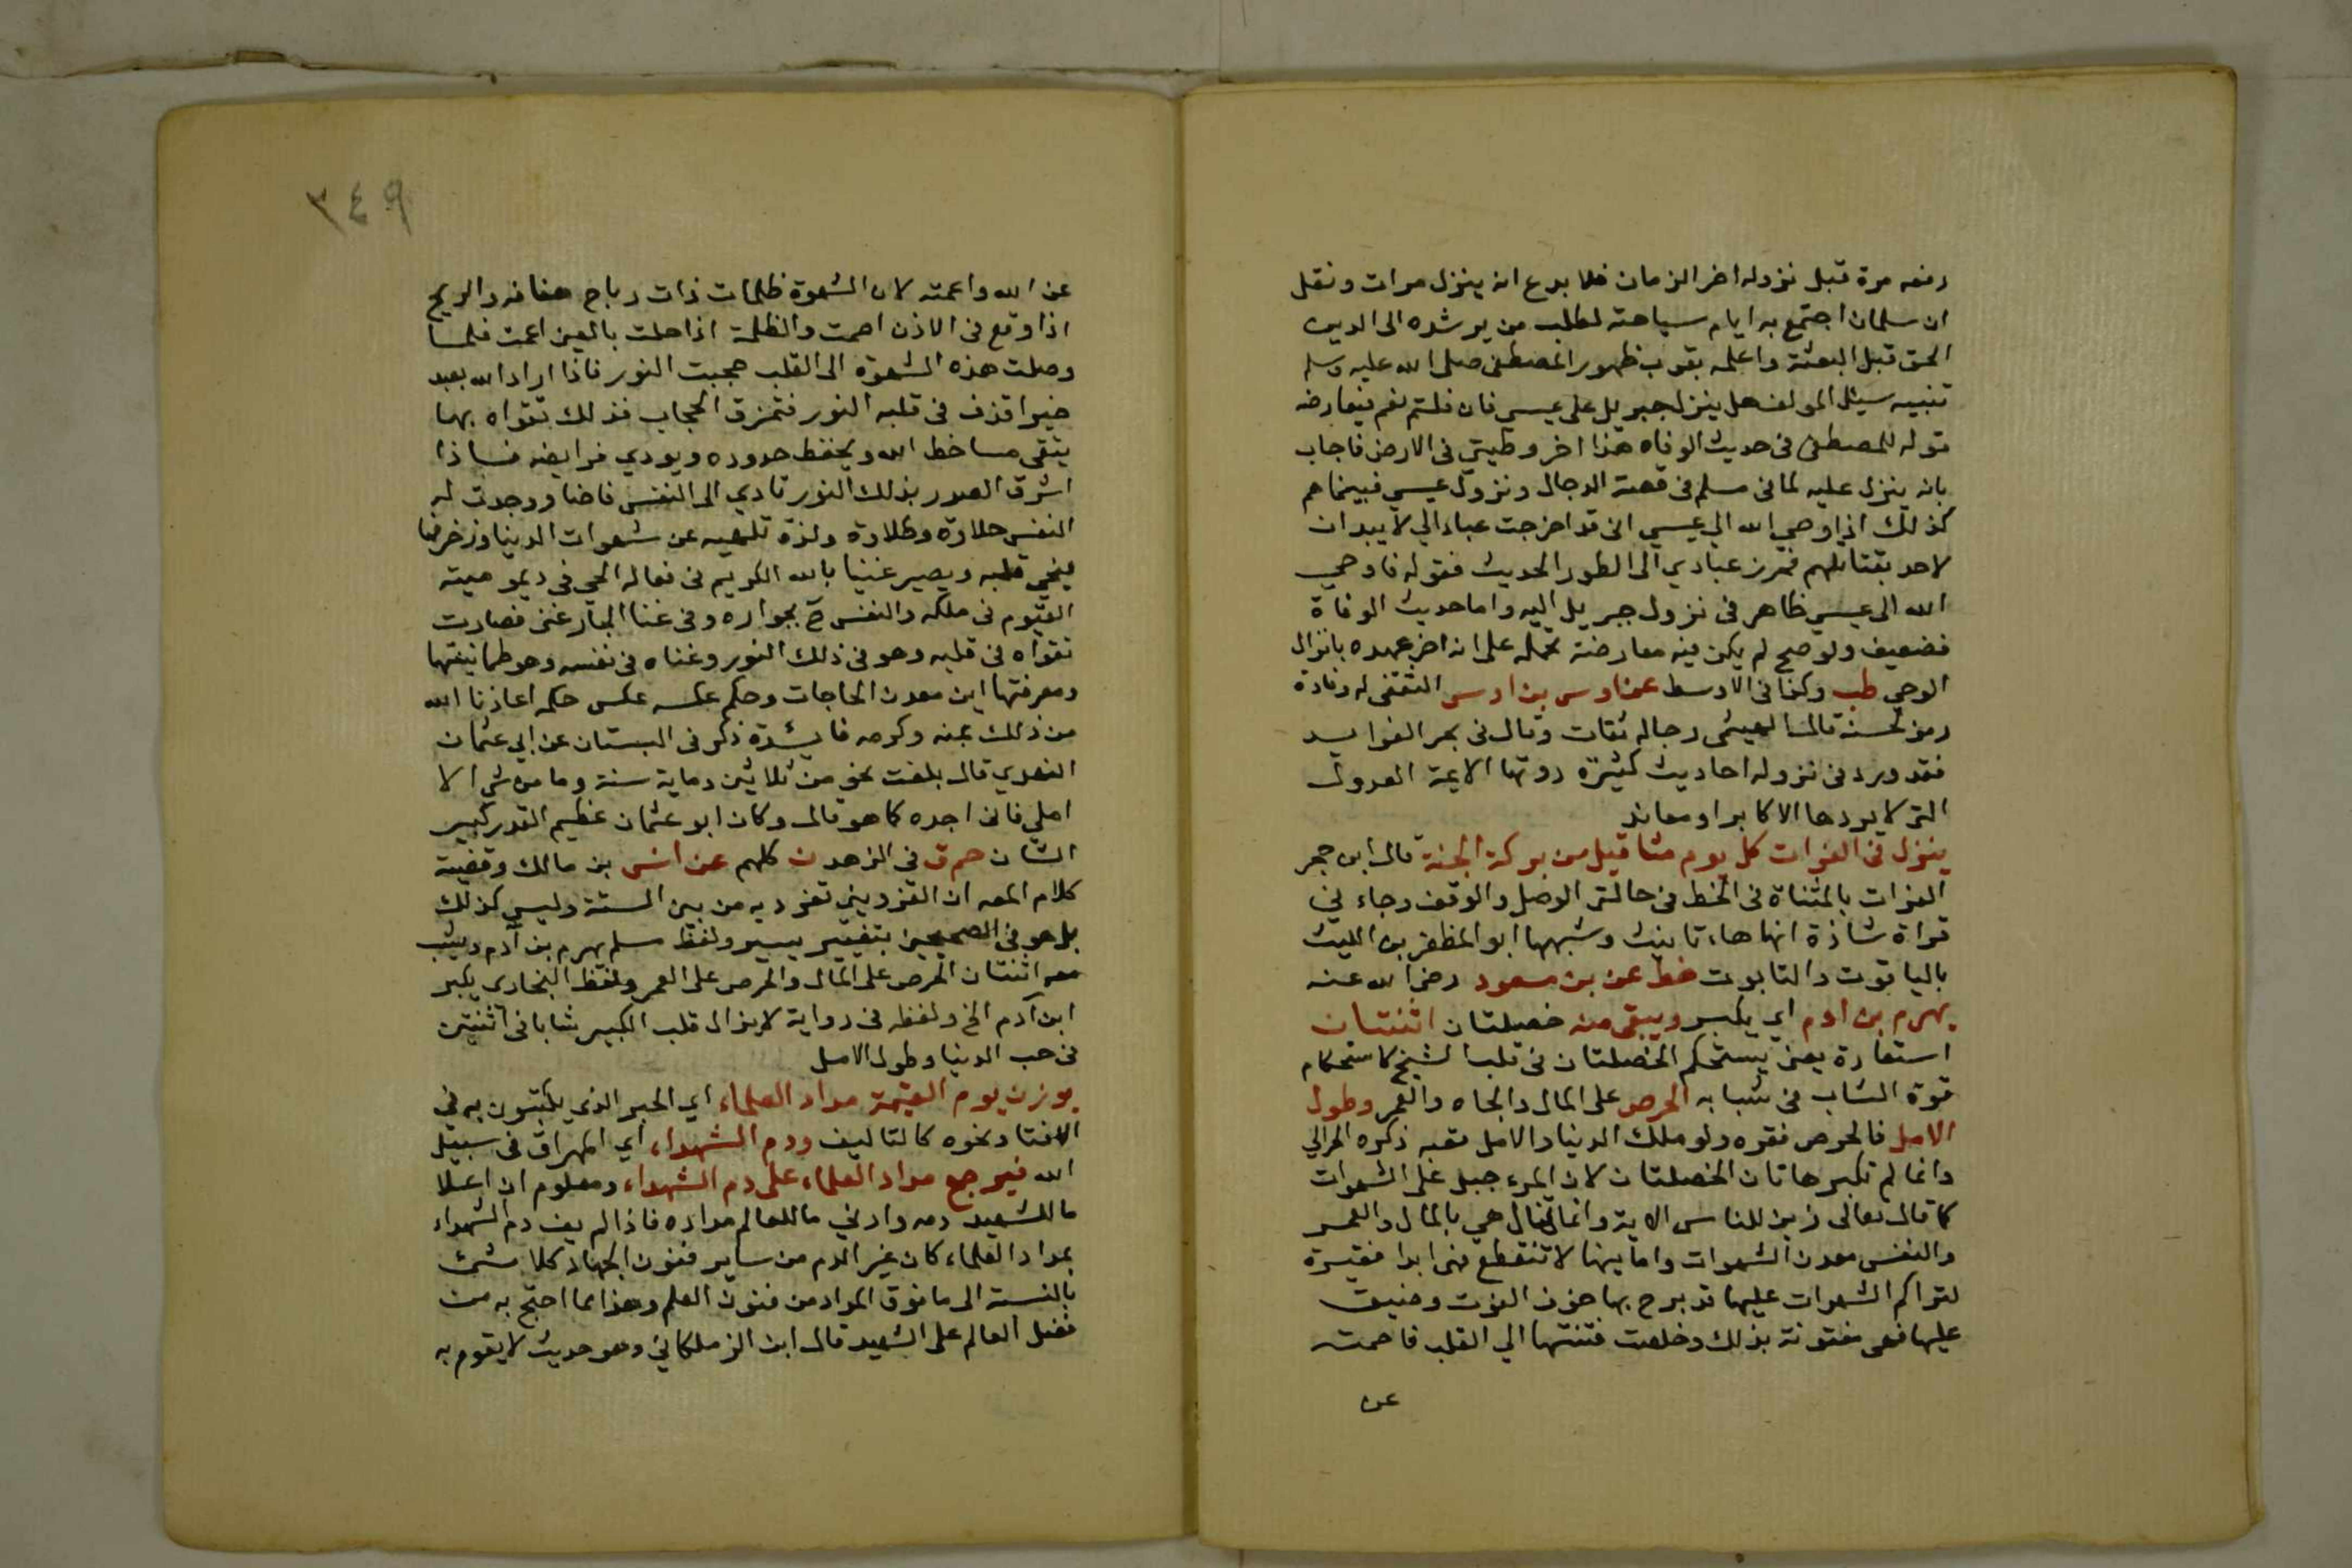 رفعه مرة قبل نزوله اخر الزمان فلا بدع انه ينزل مرات ونقل
ان سلمان اجتمع به ايام سياحته لطلب من يرشده الى الدين
الحق قبل البعثة واعلمه بقرب ظهور المصطفى صلى الله عليه وسلم
تنبيه سئل المولف هل ينزل جبريل على عيسى فان قلتم نعم يعارضه
قوله للمصطفى في حديث الوفاه هذا اخر وطيتي في الارض فاجاب
بانه ينزل عليه لما في مسلم في قصة الدجال ونزول عيسي فبينما هم
كذلك اذ اوحي الله الي عيسي اني قد اخرجت عبادا لي لا يدان
لاحد بقتالهم فحرز عبادي الى الطور الحديث فقوله فاوحي
الله الى عيسي ظاهر في نزول جبريل اليه واما حديث الوفاة
فضعيف ولو صح لم يكن فيه معارضة تحمله على انه اخر عهده بانزال
الوحي طب وكذا في الاوسط عن اوس بن اوس الثقفي له وفادة
رمز لحسنه قال الهيثمى رجاله ثقات وقال في بحر الفوايد
فقد ورد في نزوله احاديث كثيرة روتها الايمة العدول
التي لا يردها الا مكابر او معاند
ينزل في الفرات كل يوم مثاقيل من بركة الجنة قال ابن حجر
الفرات بالمثناة في الخط في حالتي الوصل والوقف وجاء في
قراة شاذة انها هاء تانيث وشبهها ابو المظفر بن الليث
بالياقوت والتابوت خط عن بن مسعود رضي الله عنه
يهرم بن ادم اي يكبر ويبقى منه خصلتان اثنتان
استعارة يعني يستحكم الخصلتان في قلب الشيخ كاستحكام
قوة الشاب في شبابه الحرص على المال والجاه والعمر وطول
الامل فالحرص فقره ولو ملك الدنيا والامل تعبه ذكره الحرالي
وانما لم تكبر هاتان الخصلتان لان المرء جبل على الشهوات
كما قال تعالى زين للناس الاية وانما تنال هي بالمال والعمر
والنفس معدن الشهوات وامانيها لا تنقطع فهي ابدا فقيرة
لتراكم الشهوات عليها قد برح بها خوف الفوت وضيق
عليها فهي مفتونة بذلك وخلصت فتنتها الي القلب فاصمته
عن
٣٤٩
عن الله واعمته لان الشهوة ظلمات ذات رياح هفافه والريح
اذا وقع في الاذن اصمت والظلمة اذا حلت بالعين اعمت فلما
وصلت هذه الشهوة الى القلب حجبت النور فاذا اراد الله بعبد
خيرا قذف في قلبه النور فتمزق الحجاب فذلك تقواه بها
يتقى مساخط الله ويحفظ حدوده ويودي فرايضه فاذا
اشرق الصدر بذلك النور تادي الى النفس فاضا ووجدت له
النفس حلاوة وطلاوة ولذة تلهيه عن شهوات الدنيا وزخرفها
فيحي قلبه ويصير غنيا بالله الكريم في فعاله الحي في ديموميته
القيوم في ملكه والنفس ح بجواره وفي غنا الجار غنى فصارت
تقواه في قلبه وهو في ذلك النور وغناه في نفسه وهو طمانينتها
ومعرفتها اين معدن الحاجات وحكم عكسه عكس حكمه اعاذنا الله
من ذلك بمنه وكرمه فايدة ذكر في البستان عن ابي عثمان
النهدي قال بلغت نحو من ثلاثين وماية سنة وما من شي الا
املي فاني اجده كما هو قال وكان ابو عثمان عظيم القدر كبير
الشان حم ق في الزهد ن كلهم عن انس بن مالك وقضية
كلام المص ان القزويني تفرد به من بين الستة وليس كذلك
بل هو في الصحيحين بتغيير يسير ولفظ مسلم يهرم بن آدم ويشب
معه اثنتان الحرص على المال والحرص على العمر ولفظ البخاري يكبر
ابن آدم الخ ولفظه في رواية لا يزال قلب الكبير شابا في اثنتين
في حب الدنيا وطول الامل
يوزن يوم القيمة مداد العلماء اي الحبر الذي يكتبون به في
الافتا ونحوه كالتاليف ودم الشهداء اي المهراق في سبيل
الله فيرجح مداد العلماء على دم الشهداء ومعلوم ان اعلا
ما للشهيد دمه وادني ما للعالم مداده فاذا لم يف دم الشهداء
بمداد العلماء كان غير الدم من ساير فنون الجهاد كلا شئ
بالنسبة الى ما فوق المداد من فنون العلم وهذا مما احتج به من
فضل العالم على الشهيد قال ابن الزملكاني وهو حديث لا يقوم به